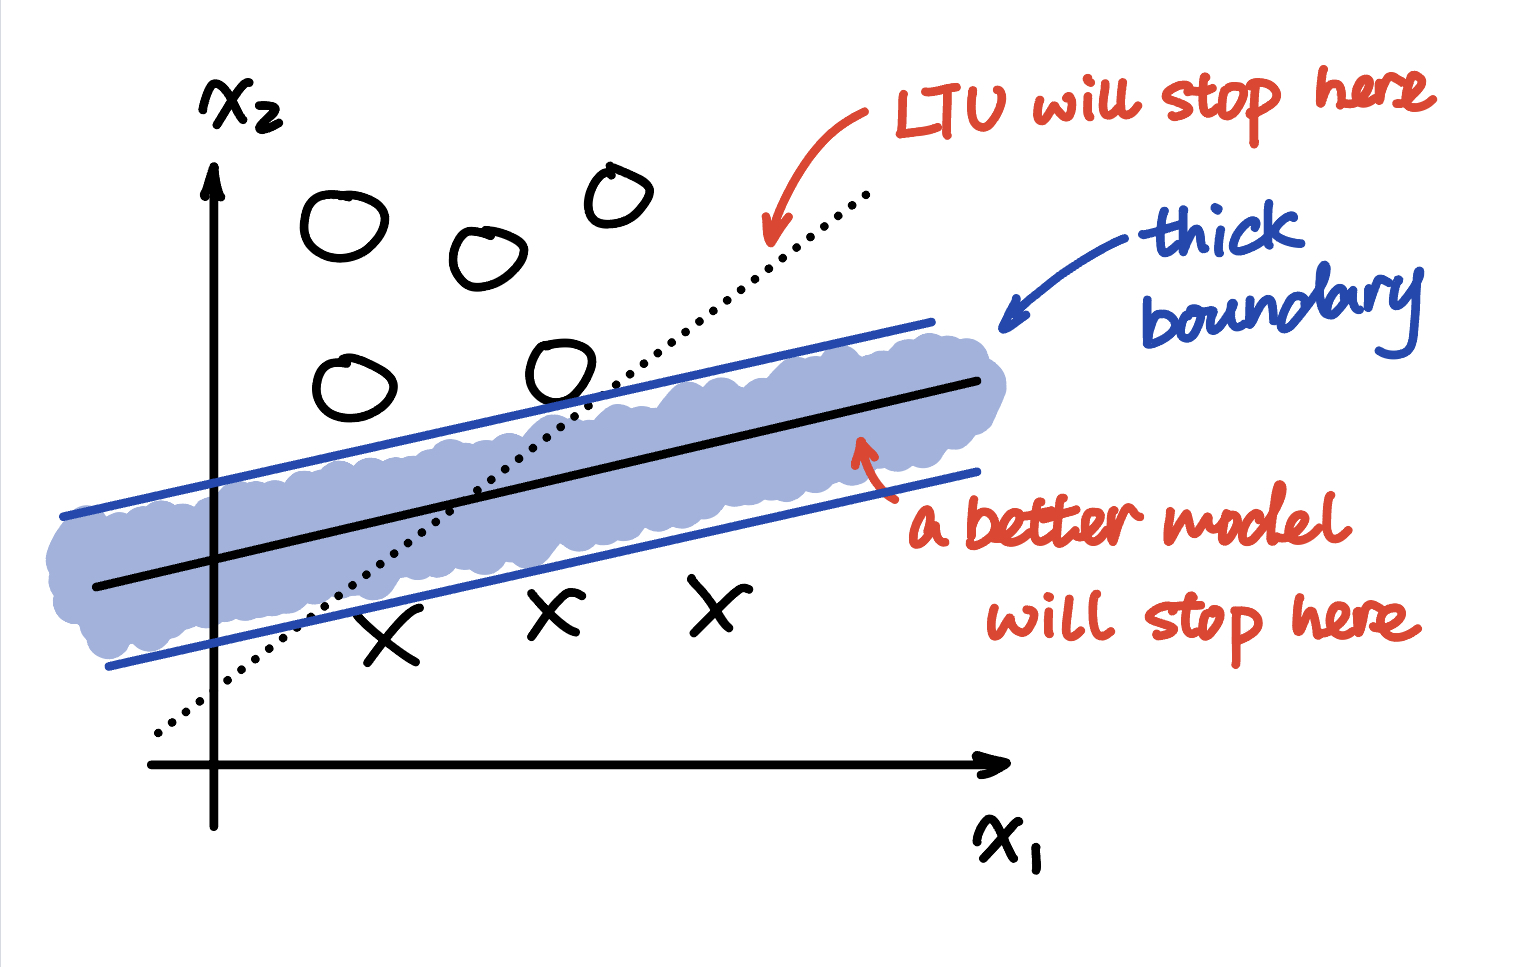 x₂
LTU will stop here
thick
boundary
a better model
will stop here
x₁